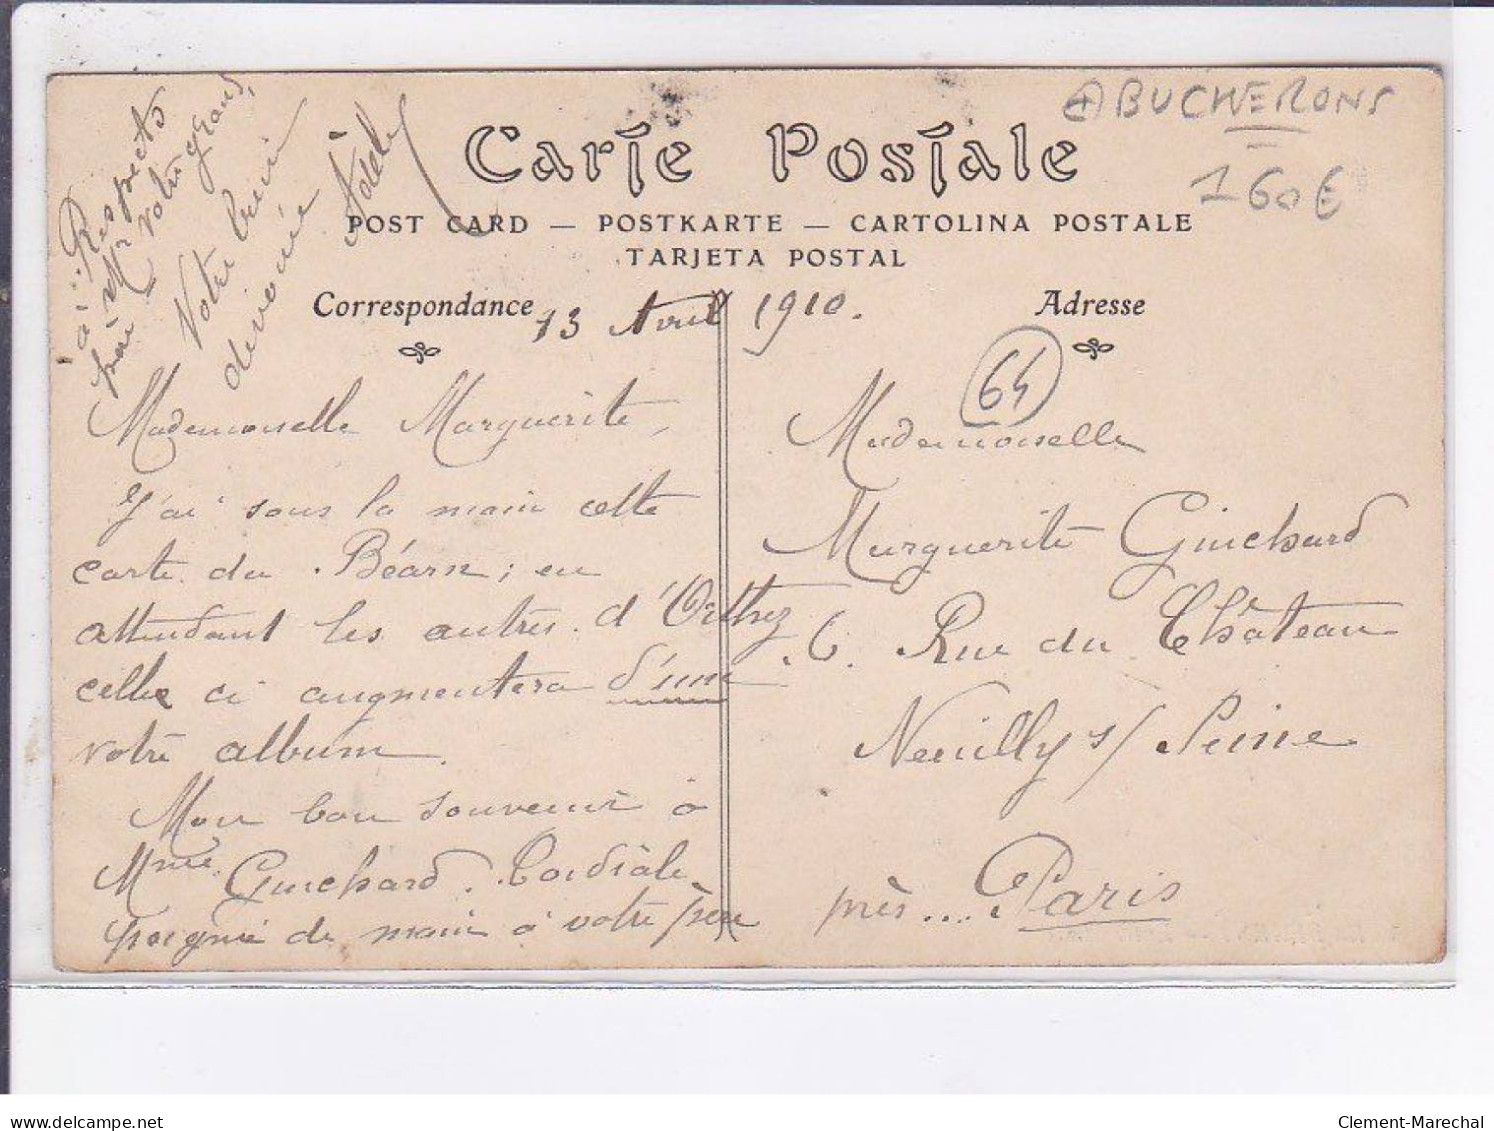 + BUCHERONS
160 €
Carte Postale
POST CARD — POSTKARTE — CARTOLINA POSTALE
TARJETA POSTAL
Correspondance
13 Avril 1910.
Adresse
64
Mademoiselle Marguerite,
J'ai sous la main cette
carte du Béarn; en
attendant les autres d'Orthez
celle ci augmentera d'une
votre album.
Mon bon souvenir à
Mme Guichard. Cordiale
poignée de main à votre père
Respects
à Mr votre grand
père
Votre bien
dévouée
Mademoiselle
Marguerite Guichard
6. Rue du Château
Neuilly s/ Seine
près .... Paris
delcampe.net
Clement-Marechal